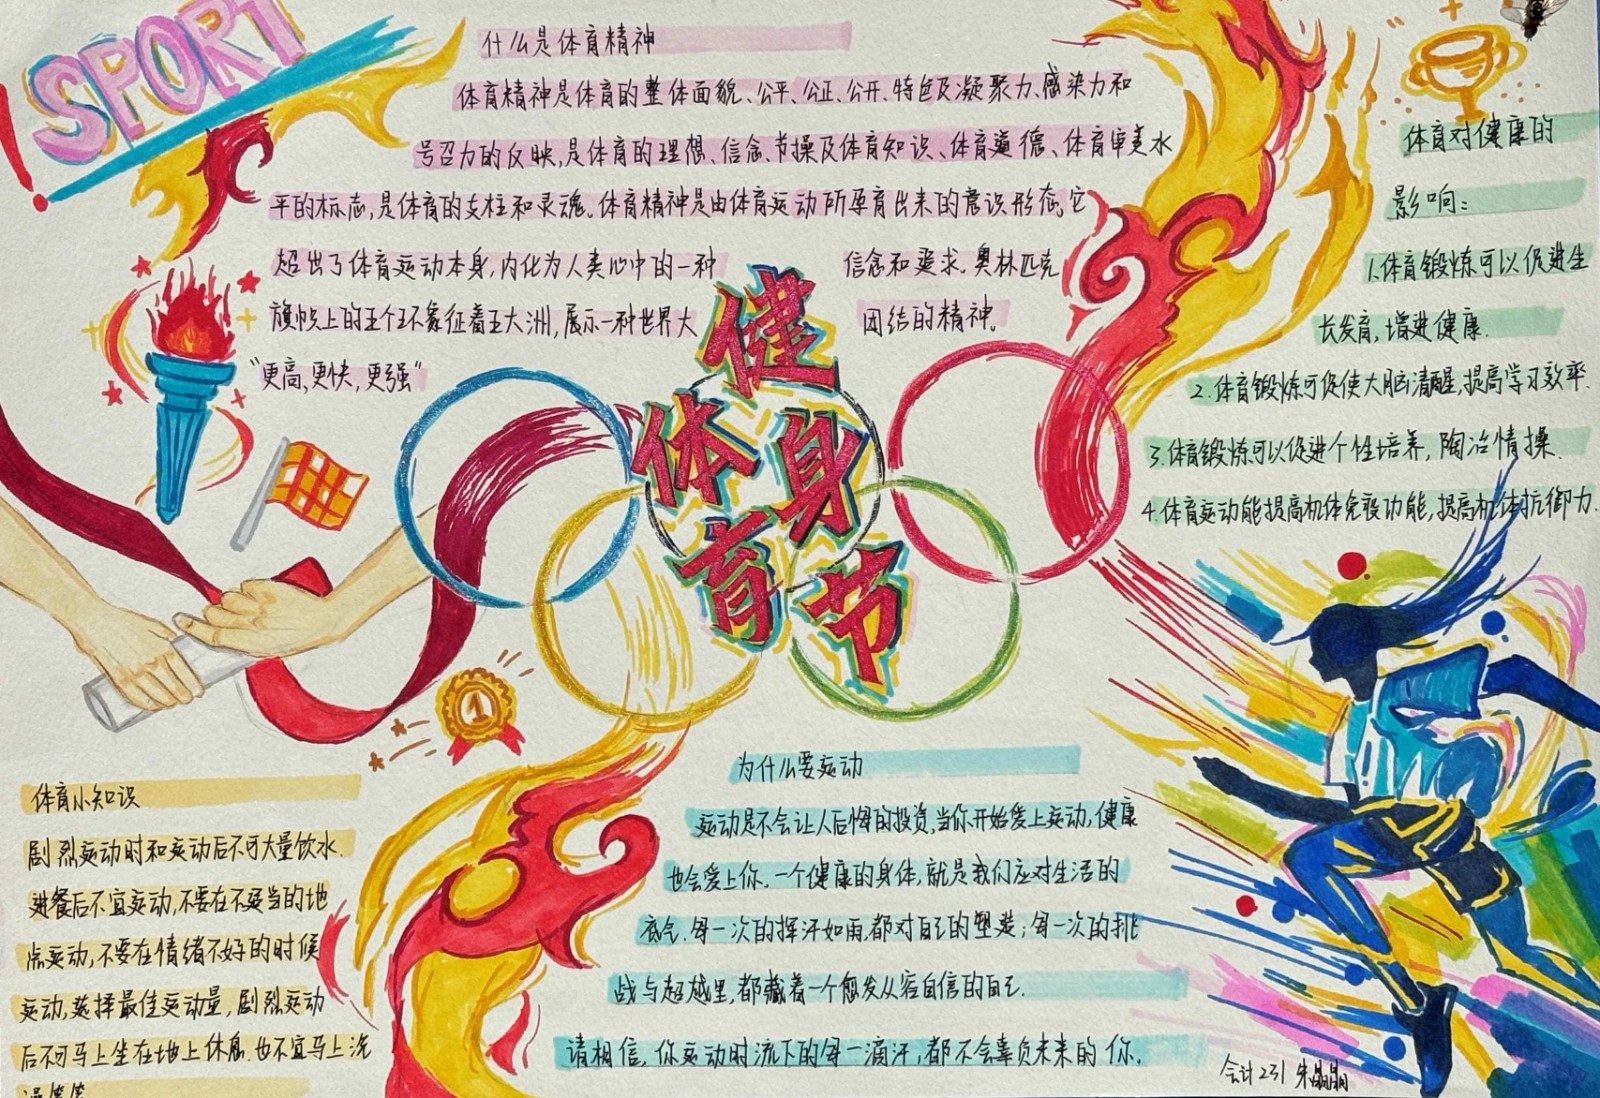 SPORT!
什么是体育精神
体育精神是体育的整体面貌、公平、公正、公开、特色及凝聚力、感染力和
号召力的反映,是体育的理想、信念、节操及体育知识、体育道德、体育审美水
平的标志,是体育的支柱和灵魂。体育精神是由体育运动所孕育出来的意识形态,它
超出了体育运动本身,内化为人类心中的一种
信念和追求。奥林匹克
旗帜上的五个环象征着五大洲,展示一种世界大
团结的精神。
“更高、更快,更强”
体育对健康的
影响:
1.体育锻炼可以促进生
长发育,增进健康.
2.体育锻炼可促使大脑清醒,提高学习效率.
3.体育锻炼可以促进个性培养,陶冶情操.
4.体育运动能提高机体免疫功能,提高机体抗御力.
健
体身
育节
1
体育小知识
剧烈运动时和运动后不可大量饮水.
进餐后不宜运动,不要在不适当的地
点运动,不要在情绪不好的时候
运动,选择最佳运动量,剧烈运动
后不可马上坐在地上休息.也不宜马上洗
为什么要运动
运动是不会让人后悔的投资,当你开始爱上运动,健康
也会爱上你.一个健康的身体,就是我们应对生活的
底气.每一次的挥汗如雨,都对自己的塑造;每一次的挑
战与超越里,都藏着一个愈发从容自信的自己.
请相信,你运动时流下的每一滴汗,都不会辜负未来的你.
会计231 朱晶晶